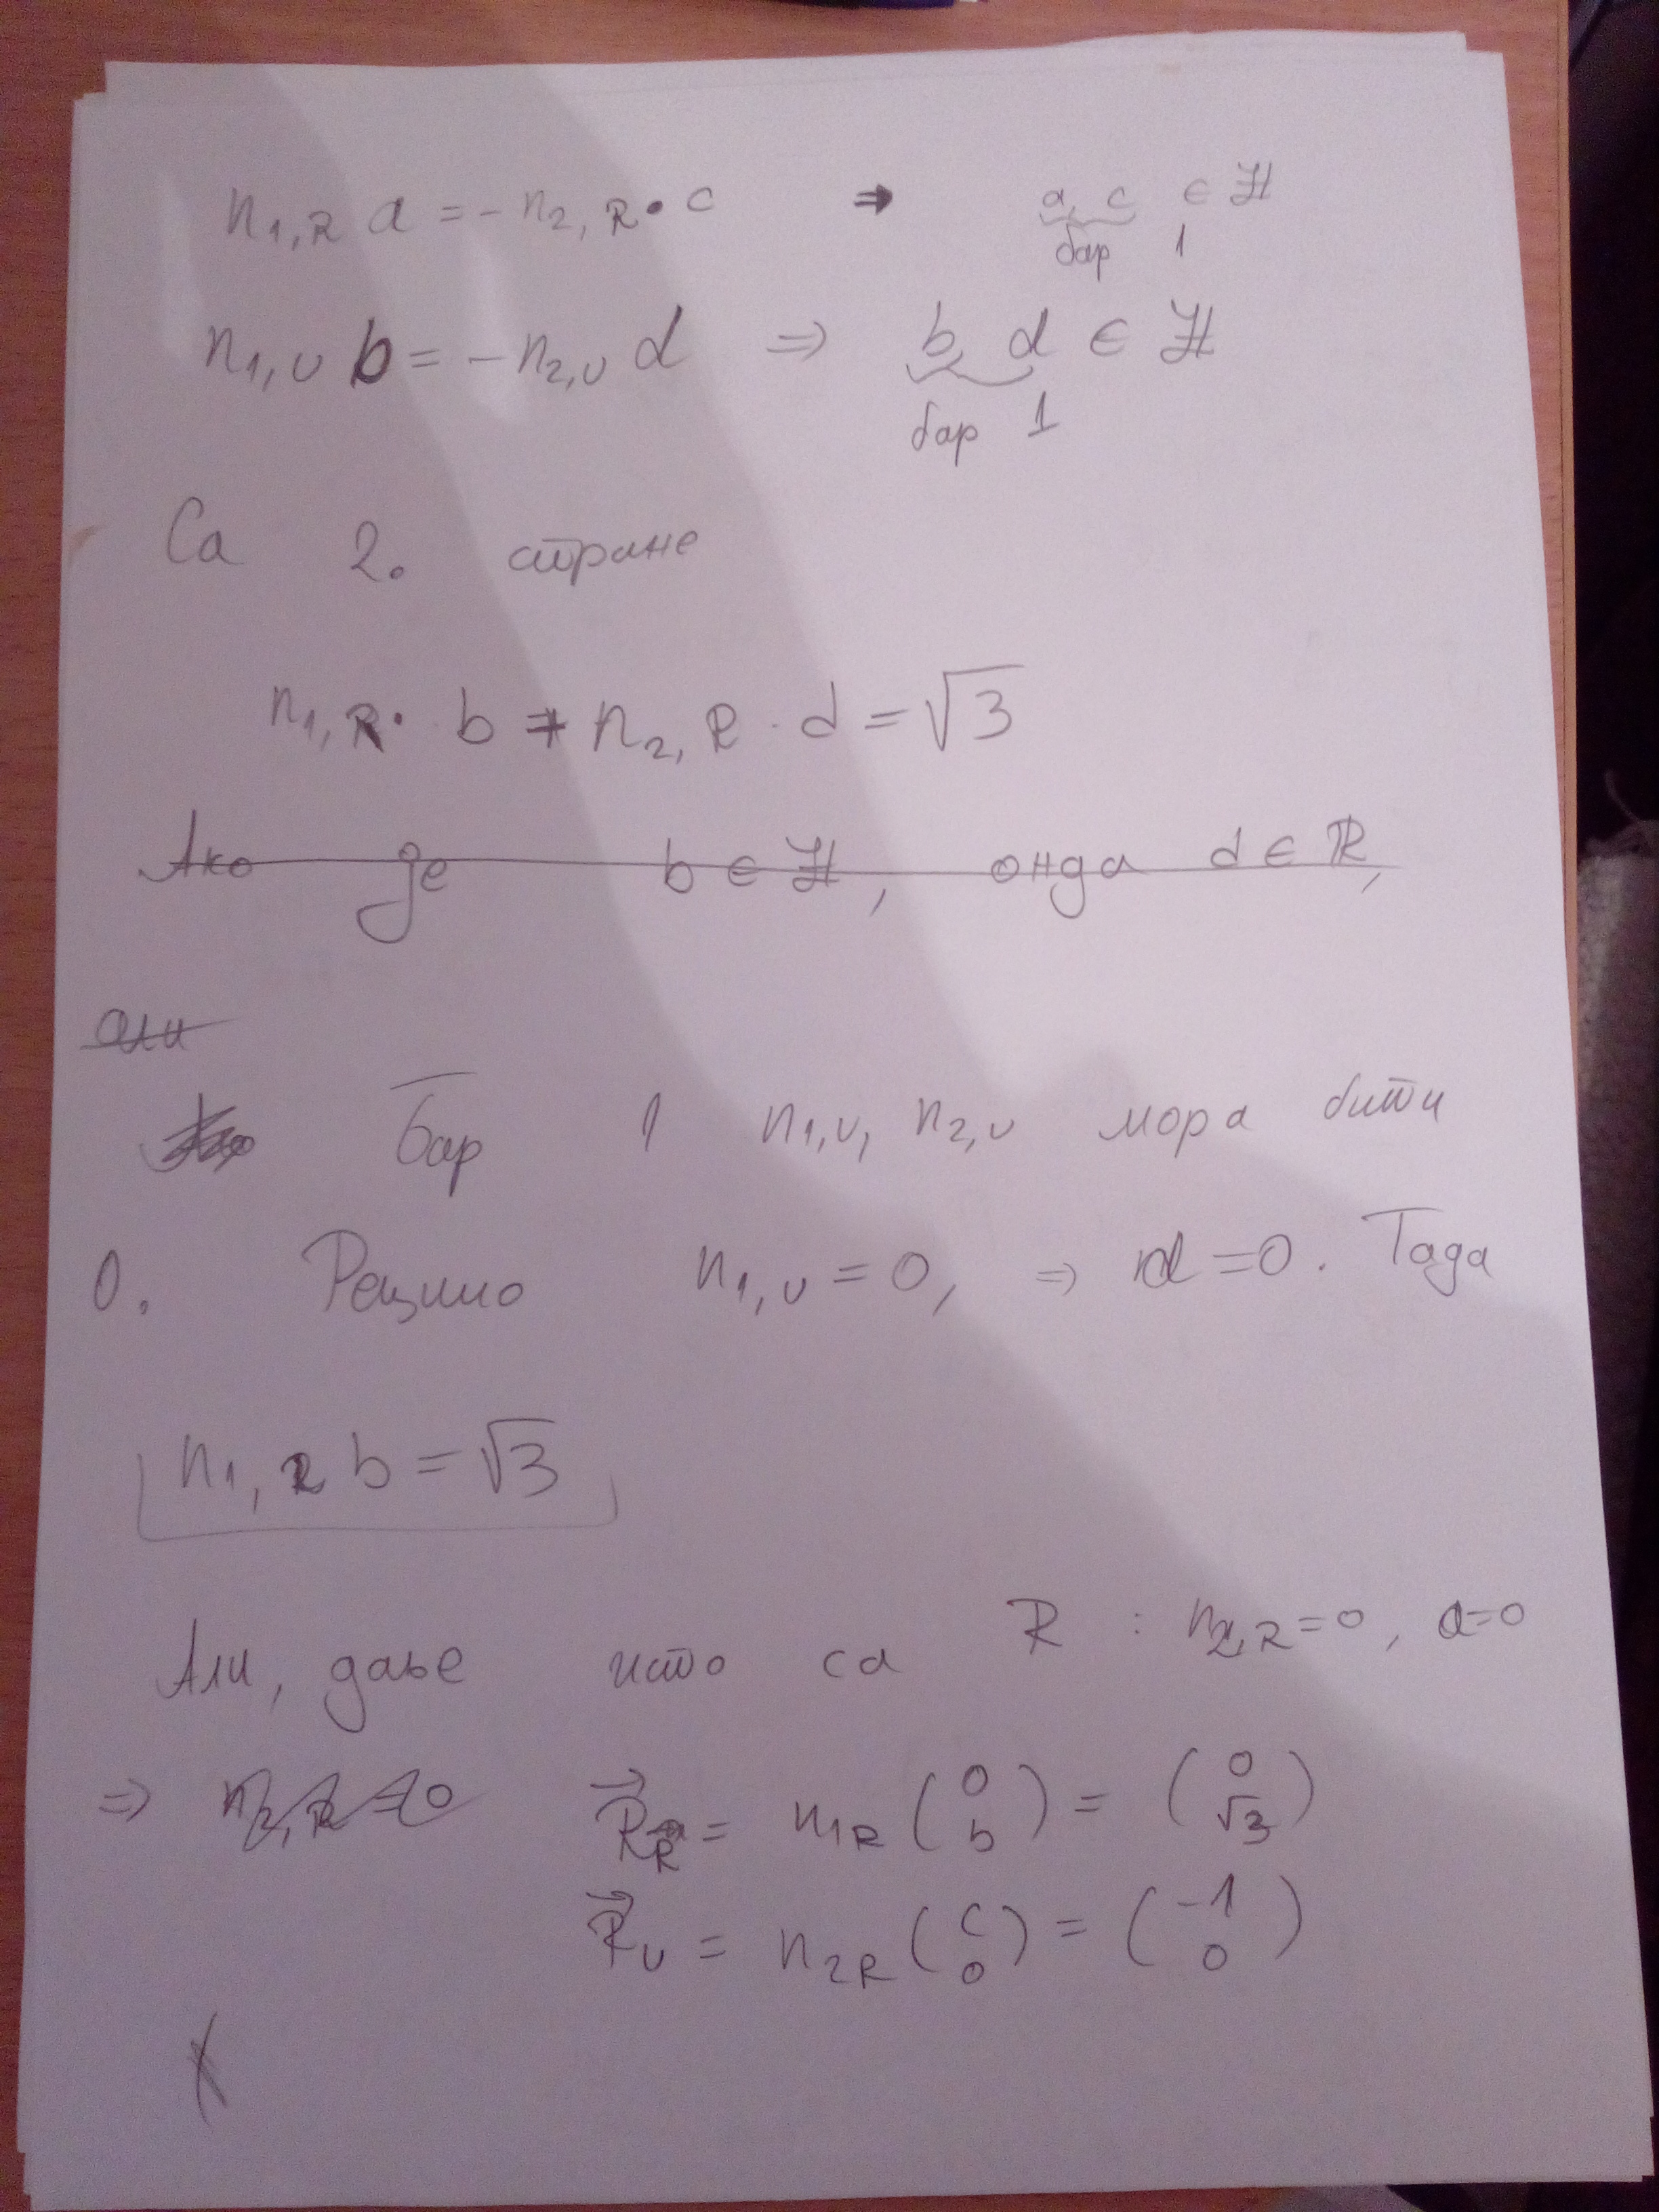 n₁,R a = - n₂,R • c ⇒ a, c ∈ ℍ
бар 1
n₁,υ b = - n₂,υ d ⇒ b, d ∈ ℍ
бар 1
Са 2. стране
n₁,R · b + n₂,R · d = √3
Ако је b ∈ ℍ, онда d ∈ ℝ,
али
Бар 1 n₁,υ, n₂,υ мора бити
0. Рецимо n₁,υ = 0, ⇒ d = 0. Тада
n₁,R b = √3
Али, даље исто са R : n₂,R = 0, a = 0
⇒ n₂,R = 0 R⃗_R = n₁R (0 b) = (0 √3)
R⃗_υ = n₂R (c 0) = (-1 0)